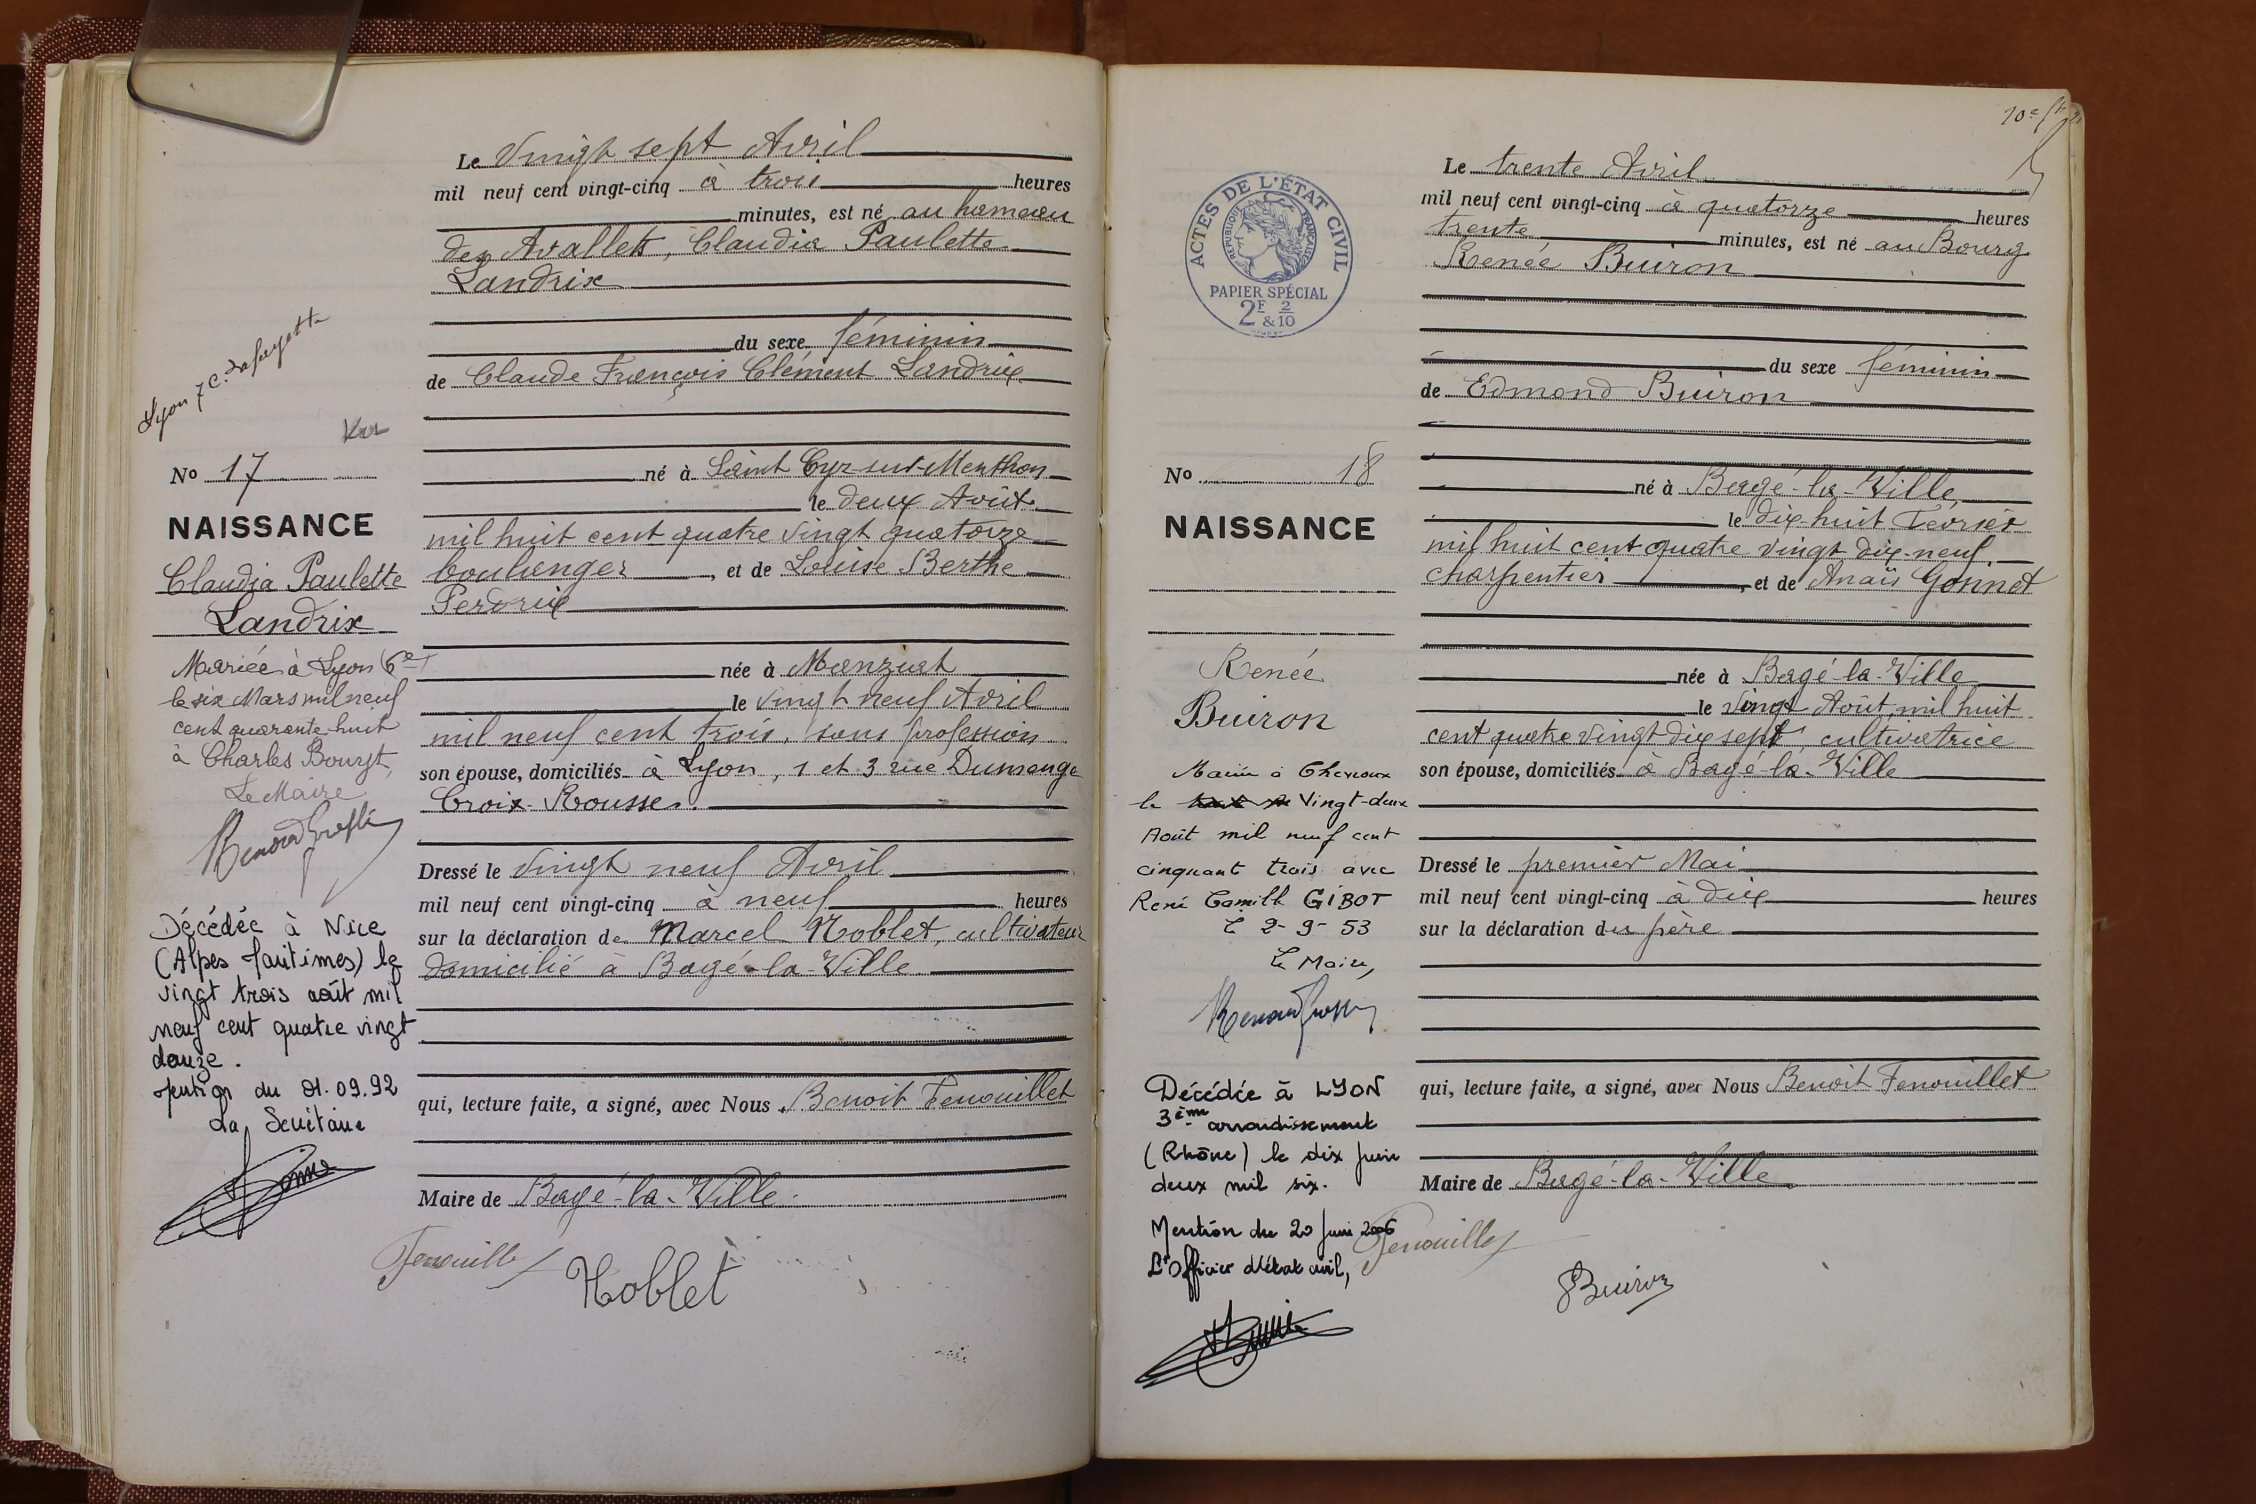 Le Vingt sept Avril
mil neuf cent vingt-cinq à trois heures
minutes, est né au hameau
des Avallets, Claudia Paulette
Landrix
du sexe féminin
de Claude François Clément Landrix
né à Saint Cyr-sur-Menthon
le deux Août
mil huit cent quatre vingt quatorze
boulanger, et de Louise Berthe
Perdrix
née à Manziat
le vingt neuf Avril
mil neuf cent trois, sans profession
son épouse, domiciliés à Lyon, 1 et 3 rue Dumenge
Croix-Rousse.
Dressé le vingt neuf Avril
mil neuf cent vingt-cinq à neuf heures
sur la déclaration de Marcel Noblet, cultivateur
domicilié à Bagé-la-Ville
qui, lecture faite, a signé, avec Nous Benoit Fenouillet
Maire de Bagé-la-Ville.
Fenouillet
Noblet
Lyon 7 C. Lafayette
No 17
NAISSANCE
Claudia Paulette
Landrix
Mariée à Lyon (6e)
le six Mars mil neuf
cent quarante-huit
à Charles Bourgt,
Le Maire
Décédée à Nice
(Alpes Maritimes) le
vingt trois août mil
neuf cent quatre vingt
douze.
Mention du 01.09.92
La Secrétaire
10e
ACTES DE L'ÉTAT CIVIL
RÉPUBLIQUE FRANÇAISE
PAPIER SPÉCIAL
2F 2
& 10
Le trente Avril
mil neuf cent vingt-cinq à quatorze heures
trente minutes, est né au Bourg
Renée Buiron
du sexe féminin
de Edmond Buiron
né à Bagé-la-Ville
le dix-huit Février
mil huit cent quatre vingt dix-neuf
charpentier, et de Anaïs Gonnet
née à Bagé-la-Ville
le vingt Août mil huit
cent quatre vingt dix sept, cultivatrice
son épouse, domiciliés à Bagé-la-Ville
Dressé le premier Mai
mil neuf cent vingt-cinq à dix heures
sur la déclaration du père
qui, lecture faite, a signé, avec Nous Benoit Fenouillet
Maire de Bagé-la-Ville
Fenouillet
Buiron
No 18
NAISSANCE
Renée
Buiron
Mariée à Chevroux
le Vingt-deux
Août mil neuf cent
cinquante trois avec
René Camille GIBOT
Le 2-9-53
Le Maire,
Décédée à LYON
3ème arrondissement
(Rhône) le dix juin
deux mil six.
Mention du 20 juin 2006
L'Officier d'état civil,